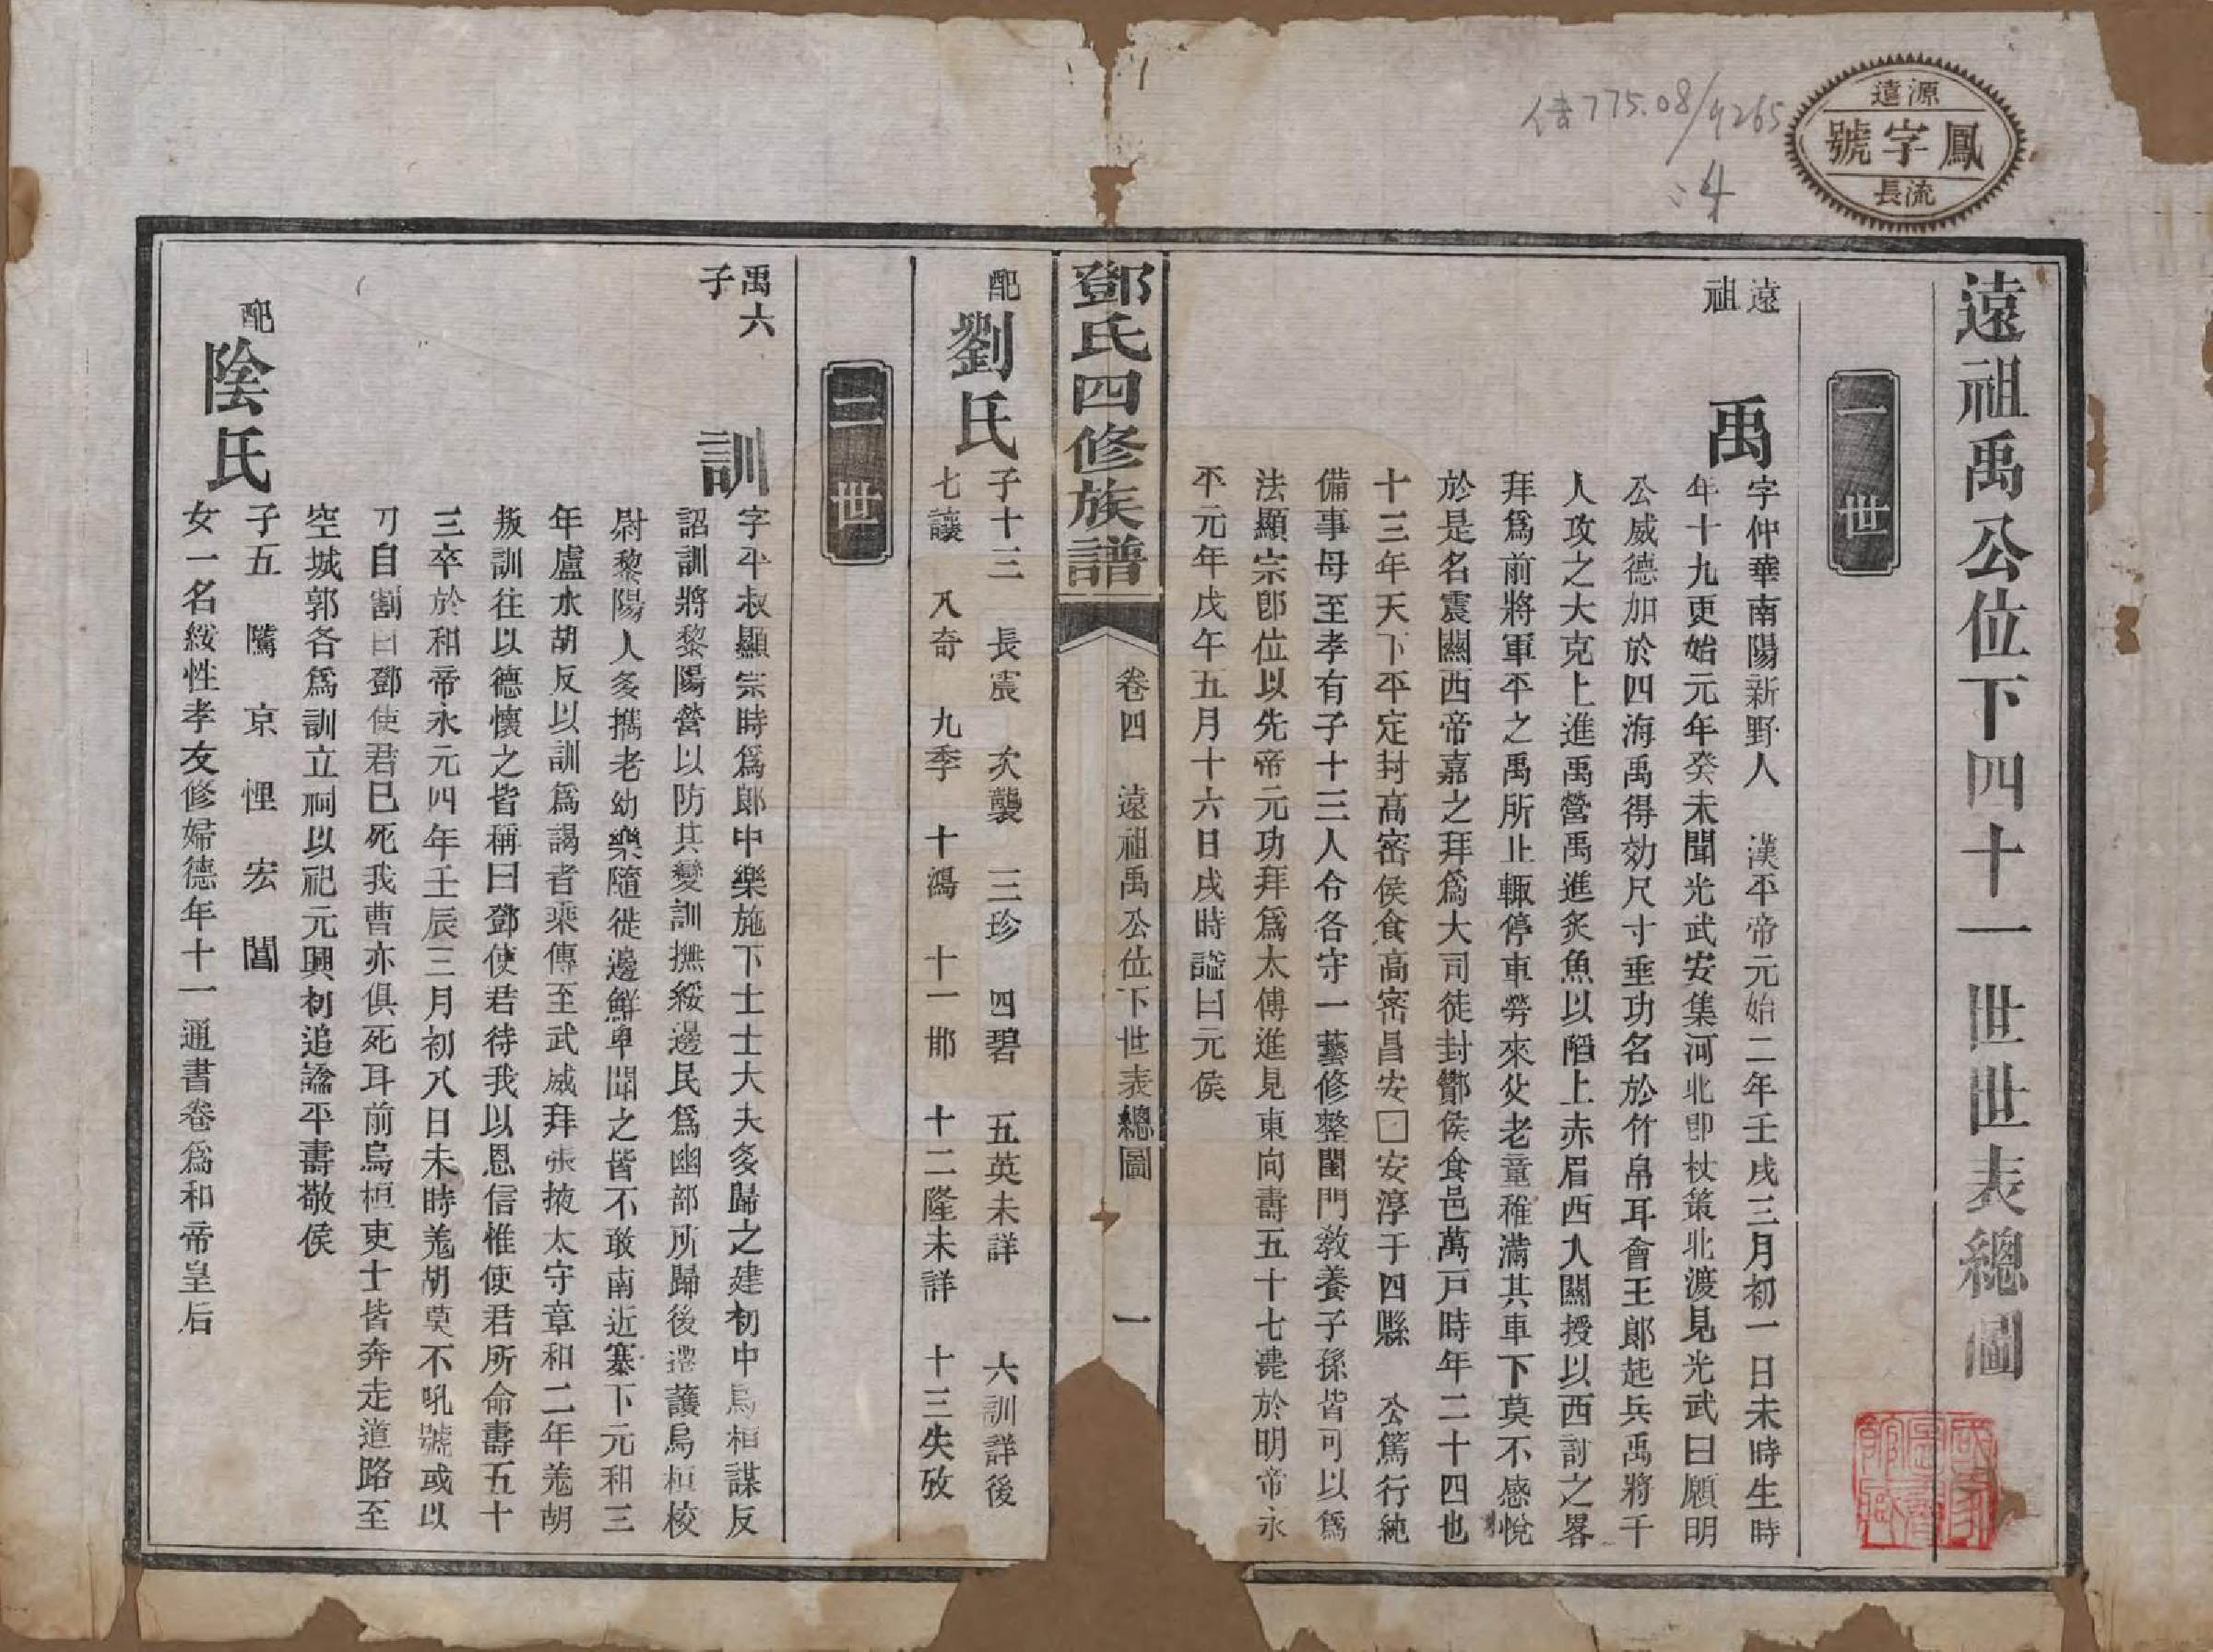 源遠
鳳字號
流長
775.08/9265
:4
遠祖禹公位下四十一世世表總圖
一世
遠祖
禹
字仲華南陽新野人　漢平帝元始二年壬戌三月初一日未時生時
年十九更始元年癸未聞光武安集河北即杖策北渡見光武曰願明
公威德加於四海禹得効尺寸垂功名於竹帛耳會王郎起兵禹將千
人攻之大克上進禹營禹進炙魚以㗖上赤眉西入關授以西討之畧
拜爲前將軍平之禹所止輒停車勞來父老童稚滿其車下莫不感悅
於是名震關西帝嘉之拜爲大司徒封酇侯食邑萬戸時年二十四也
十三年天下平定封高密侯食高密昌安□安淳于四縣　公篤行純
備事母至孝有子十三人令各守一藝修整閨門敎養子孫皆可以爲
法顯宗卽位以先帝元功拜爲太傅進見東向壽五十七薨於明帝永
平元年戊午五月十六日戌時謚曰元侯
鄧氏四修族譜
卷四　遠祖禹公位下世表總圖　一
配
劉氏
子十三　長震　次襲　三珍　四碧　五英未詳　六訓詳後
七讓　八奇　九季　十鴻　十一邯　十二隆未詳　十三失攷
二世
禹六子
訓
字平叔顯宗時爲郎中樂施下士士大夫多歸之建初中烏桓謀反
詔訓將黎陽營以防其變訓撫綏邊民爲幽部所歸後遷護烏桓校
尉黎陽人多攜老幼樂隨徙邊鮮卑聞之皆不敢南近塞下元和三
年盧水胡反以訓爲謁者乘傳至武威拜張掖太守章和二年羗胡
叛訓往以德懷之皆稱曰鄧使君待我以恩信惟使君所命壽五十
三卒於和帝永元四年壬辰三月初八日未時羗胡莫不吼號或以
刀自割曰鄧使君已死我曹亦俱死耳前烏桓吏士皆奔走道路至
空城郭各爲訓立祠以祀元興初追謚平壽敬侯
配
陰氏
子五　騭　京　悝　宏　閶
女一名綏性孝友修婦德年十一通書卷爲和帝皇后